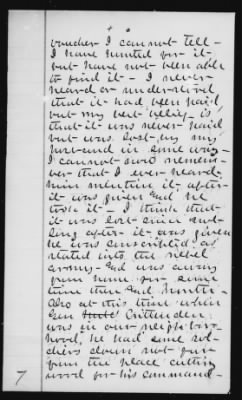 voucher I can not tell -
I have hunted for it -
but have not been able
to find it - I never
heard or understood
that it had been paid
but my best belief is
that it was never paid
but was lost by my
husband in some way -
I can not now remem-
ber that I ever heard
him mention it after
it was given and he
took it - I think that
it was lost since not
long after it was given
he was conscripted as
stated into the rebel
army - and was away
from home for some
time then and home -
Also at this time when
Gen Crittenden
was in our neighbor-
hood, he had some sol-
diers down not far
from the place cutting
wood for his command -
7